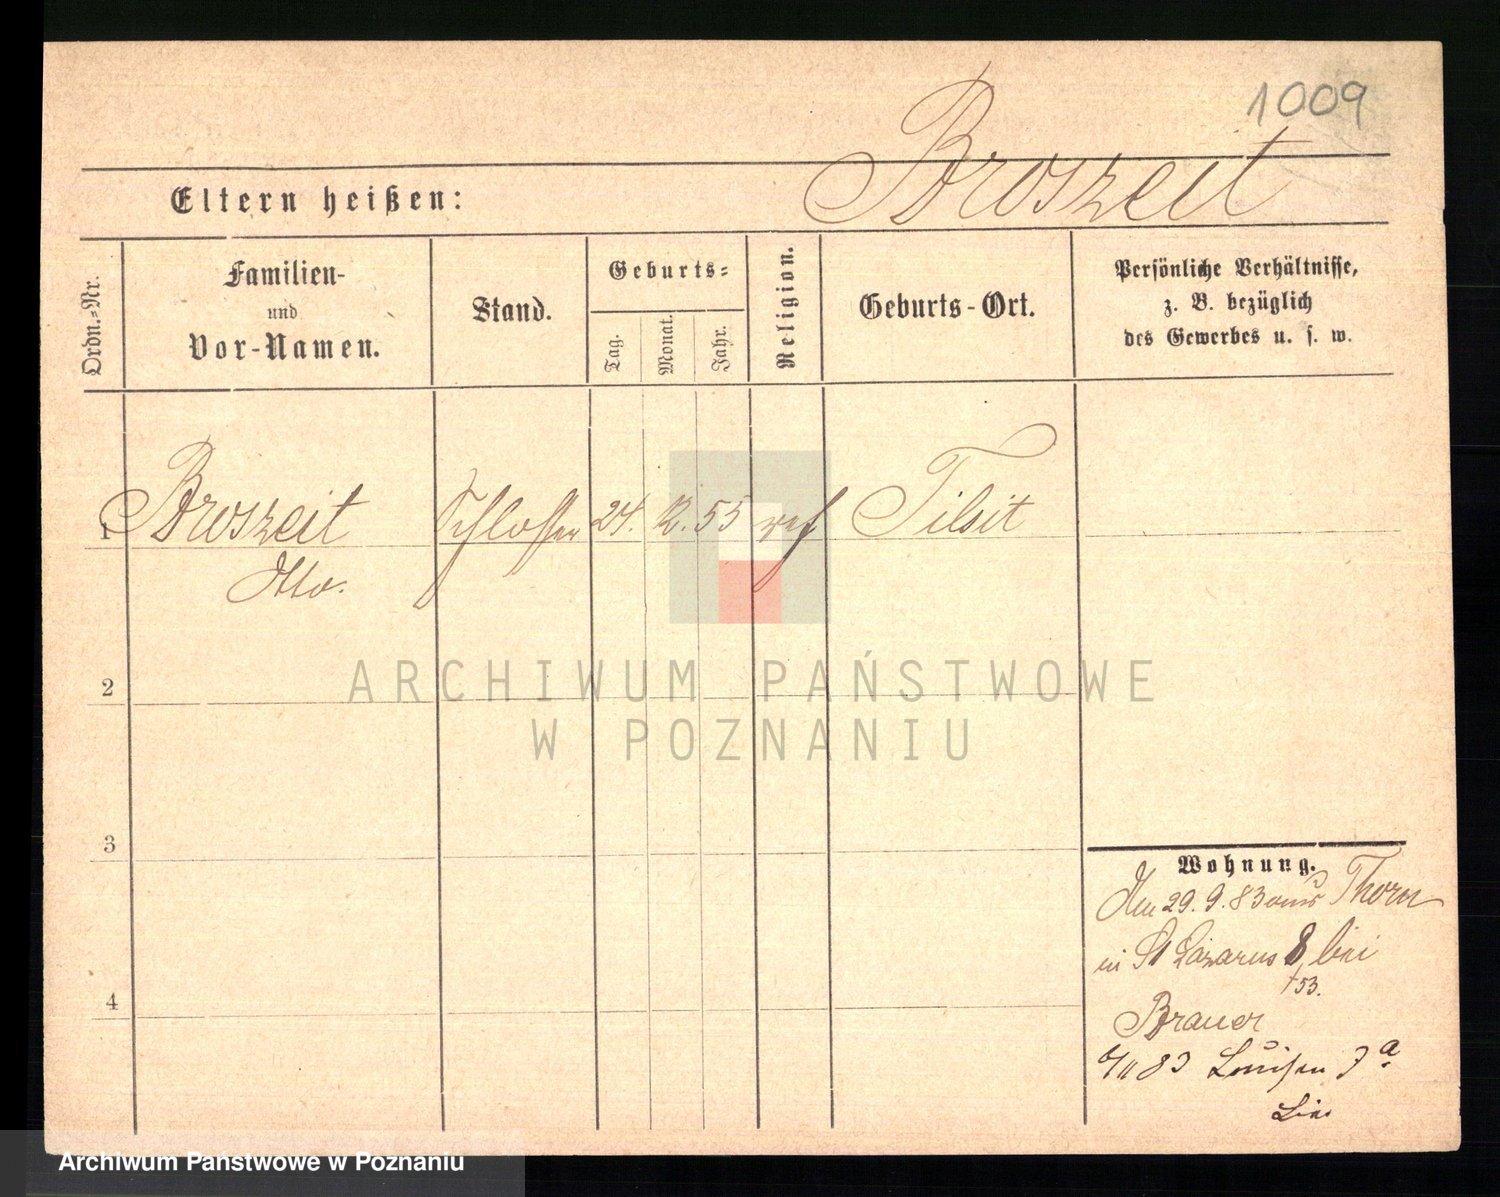 1009
Broszeit
Eltern heißen:
Ordn.-Nr.
Familien-
und
Vor-Namen.
Stand.
Geburts-
Tag.
Monat.
Jahr.
Religion.
Geburts-Ort.
Persönliche Verhältnisse,
z. B. bezüglich
des Gewerbes u. s. w.
1 Broszeit Schlosser 24. 12. 55 ref Tilsit
Otto.
2
3
4
ARCHIWUM PAŃSTWOWE
W POZNANIU
Wohnung.
Am 29. 9. 83 aus Thorn
in St Lazarus 8 bei
/53.
Brauer
83 Louisen 7a
Archiwum Państwowe w Poznaniu